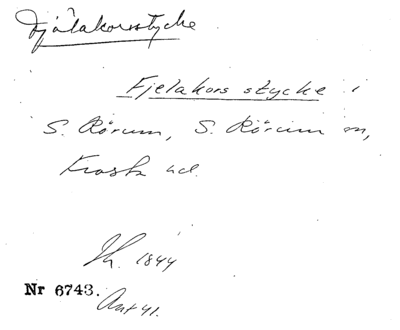 Fjälakorsstycke
Fjelakors stycke i
S. Rörum, S. Rörum sn,
Frosta hd.
Th. 1844
Nr 6743.
Ant 41.